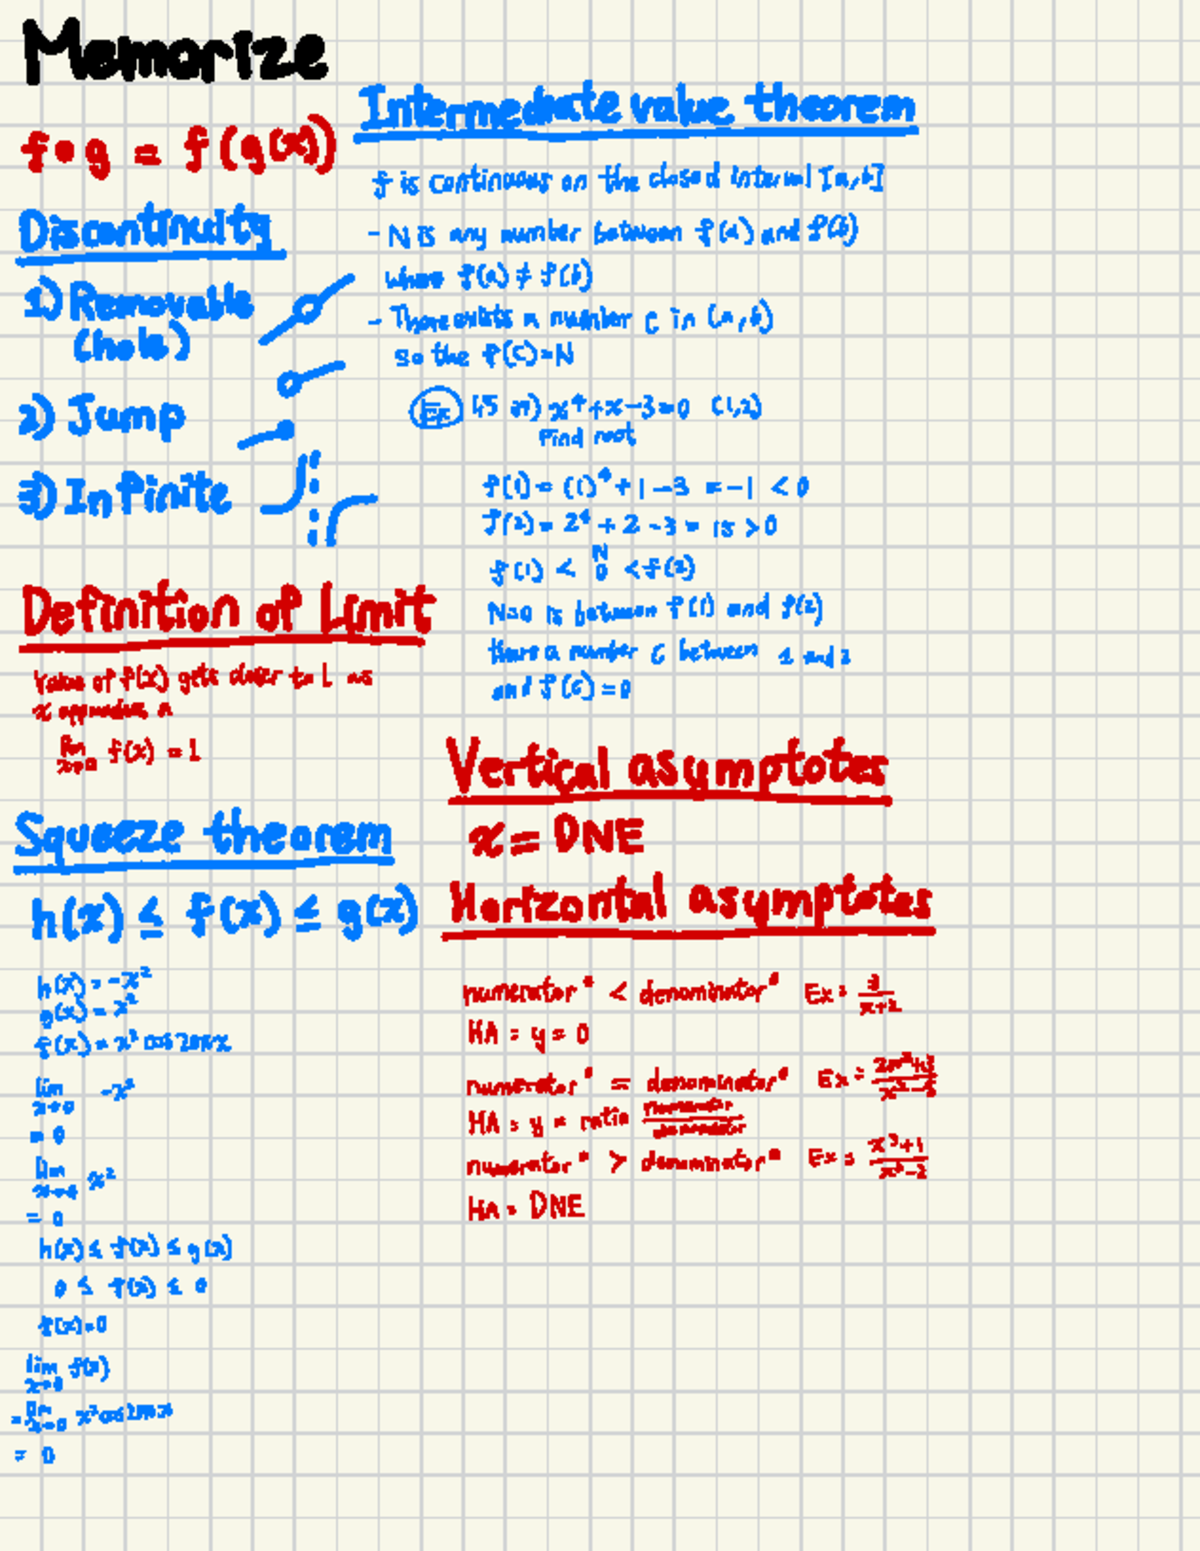 Memorize
f∘g = f(g(x))
Discontinuity
1) Removable
(hole)
2) Jump
3) Infinite
Definition of Limit
Value of f(x) gets closer to L as
x approaches a
lim f(x) = L
x→a
Squeeze theorem
h(x) ≤ f(x) ≤ g(x)
h(x) = -x²
g(x) = x²
f(x) = x² cos 20πx
lim -x²
x→0
= 0
lim x²
x→0
= 0
h(x) ≤ f(x) ≤ g(x)
0 ≤ f(x) ≤ 0
f(x) = 0
lim f(x)
x→0
= lim x² cos 20πx
x→0
= 0
Intermediate value theorem
f is continuous on the closed interval [a,b]
- N is any number between f(a) and f(b)
where f(a) ≠ f(b)
- There exists a number c in (a,b)
so the f(c) = N
Ex x⁴+x-3=0 (1,2)
Find root
f(1) = (1)⁴ + 1 - 3 = -1 < 0
f(2) = 2⁴ + 2 - 3 = 15 > 0
N
f(1) < 0 < f(2)
N=0 is between f(1) and f(2)
theres a number c between 1 and 2
and f(c) = 0
Vertical asymptotes
x = DNE
Horizontal asymptotes
numerator° < denominator° Ex = 3/x+2
HA = y = 0
numerator° = denominator° Ex =
HA = y = ratio numerator/denominator
numerator° > denominator° Ex = x³+1/x²-2
HA = DNE